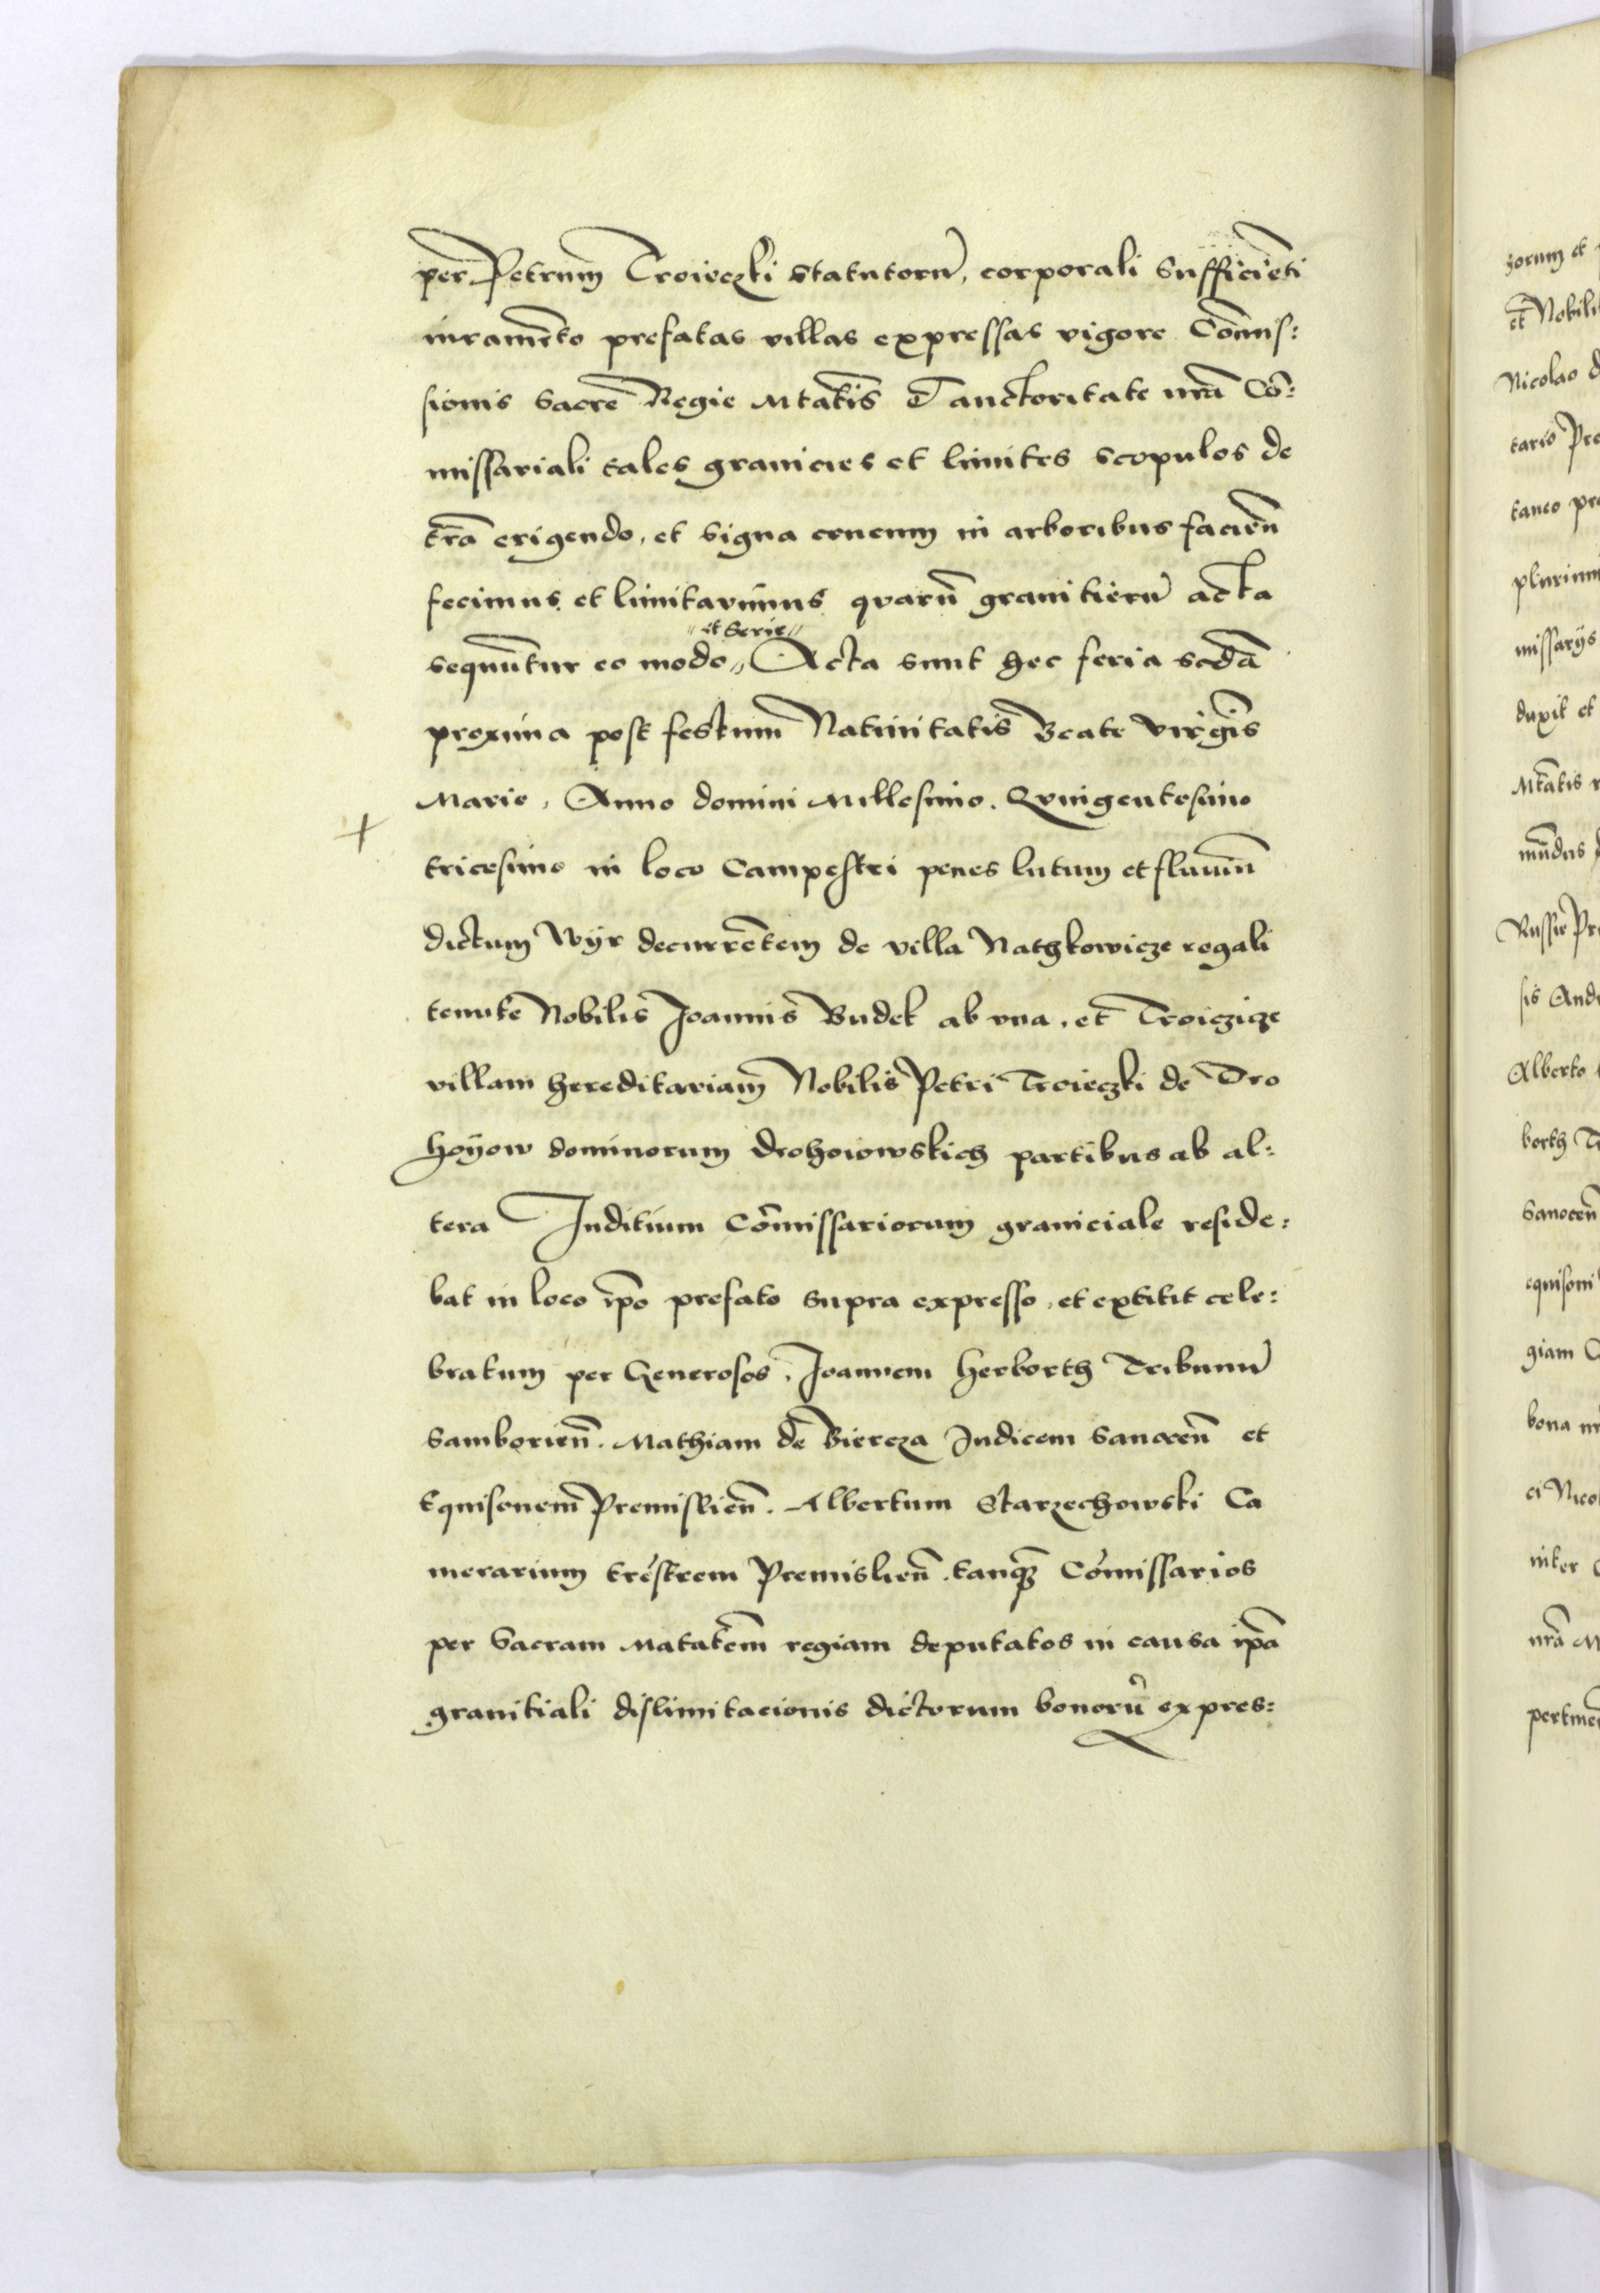 per Petrum Troieczki statutorũ, corporali sufficiẽti
iuramẽto prefatas villas expressas vigore Cõmis:
sionis Sacrẽ Regie Mtatis et auctoritate nrã Cõ:
missariali tales granicies et limites scopulos de
trã erigendo, et signa crucum in arboribus faciẽn
fecimus et limitavimus qvarũ granitierũ acta
sequũtur eo modo // et serie // Acta sunt hec feria scdã
proxima post festum Nativitatis Beate Virgĩs
Marie, Anno domini Millesimo. Qvingentesimo
+
tricesimo in loco Campestri penes lutum et fluviũ
dictum Wyr decurrẽtem de villa Nathkowicze regali
tenute Nobilis Joannis Budek ab vna, et Troiczicze
villam hereditariam Nobilis Petri Troieczki de Dro
hoyow dominorum Drohoiowskich partibus ab al:
tera Juditium Cõmissariorum graniciale reside:
bat in loco ipõ prefato supra expresso, et extitit cele:
bratum per Generosos, Joannem Herborth Tribunũ
Samborieñ. Mathiam de Biercza Judicem Sanoceñ et
Equisonem Premislieñ. Albertum Starzechowski Ca
merarium trẽstrem Premislieñ. tanqȝ Cõmissarios
per Sacram Matatẽm regiam deputatos in causa ipã
granitiali dislimitacionis dictorum bonorũ expres:
zorum et
et Nobili
Nicolao d
tario Pre
taneo pre
plurimi
missarijs
duxit et
Mtatis r
mũdus
Russie Pr
sis And
Alberto
borth T
Sanoceñ
equisoni
giam C
bona
ci Nico
inter
nrã M
pertineñ